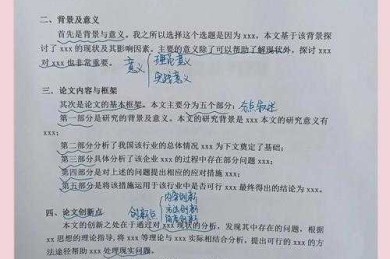 二、背景及意义
首先是背景与意义。我之所以选择这个选题是因为 xxx，本文基于该背景探
讨了 xxx 的现状及其影响因素。主要的意义除了可以帮助了解现状外，探讨 xxx
对 xxx 也非常重要。 意义 理论意义
实践意义
三、论文内容与框架
其次是论文的基本框架。本文主要分为五个部分：
第一部分是研究的背景及意义。本文的研究背景是 xxx 本文的研究意义有
xxx；
第二部分分析了我国该行业的总体情况 xxx 为下文奠定了基础；
第三部分具体分析了该企业 xxx 的过程中存在部分问题 xxx；
第四部分是对上述的问题提出相应的应对措施 xxx；
第五部分是将该措施运用于该行业中是否可行 xxx 最终得出的结论为 xxx。
内容创新
四、论文创新点 创新点 方法创新
本文的创新之处在于通过对 xxx 现状的分析，发现其中存在的问题，根
xx 思想的理论指导，将 xxx 等理论与 xxx 实际相结合分析，提出可行的 xxx 的
方法途径帮助 xxx 处理现实问题。